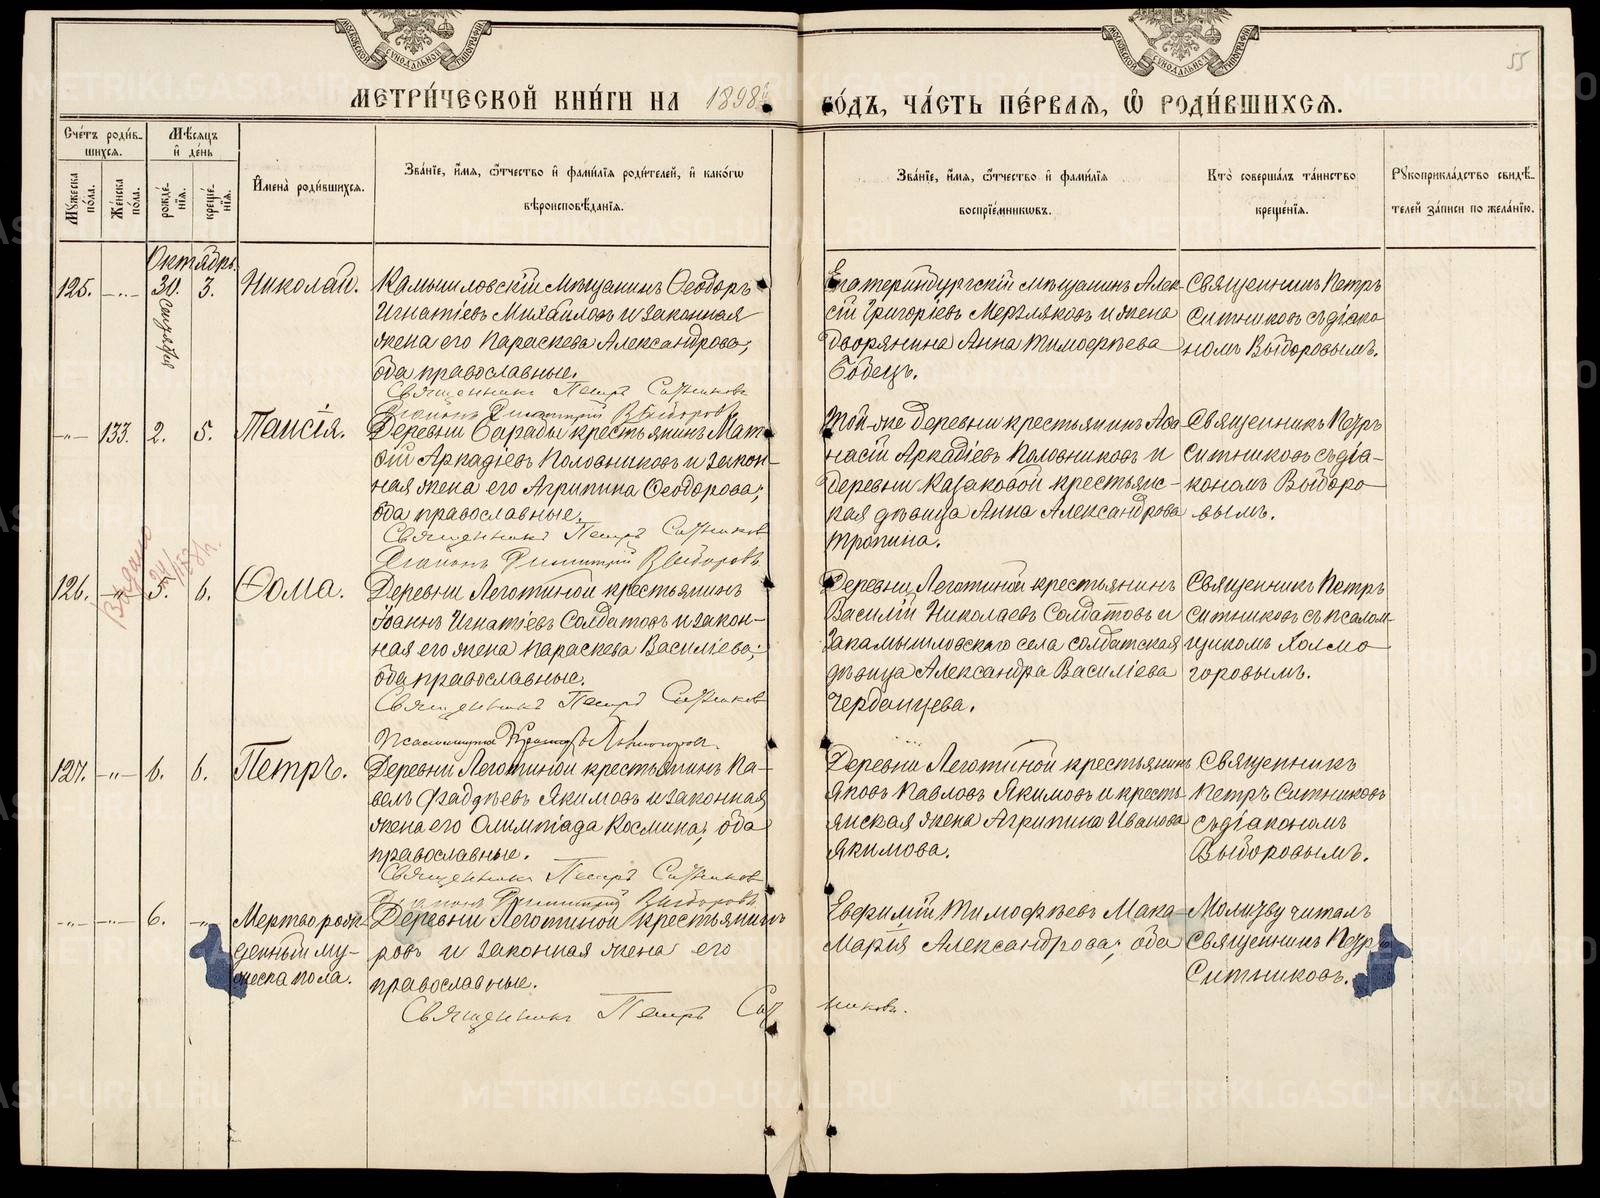 МОСКОВСКОЙ СѴНОДАЛЬНОЙ ТИПОГРАФІИ
МОСКОВСКОЙ СѴНОДАЛЬНОЙ ТИПОГРАФІИ
55
МЕТРИ́ЧЕСКОЙ КНИ́ГИ НА 1898й
ГО́ДЪ, ЧА́СТЬ ПЕ́РВАЯ, Ѡ РОДИ́ВШИХСЯ.
Сче́тъ роди́в-
шихся.
Мѣ́сяцъ
и де́нь
Му́жеска по́ла.
Же́нска по́ла.
рожде́нїя.
креще́нїя.
И҆мена̀ роди́вшихся.
Зва́нїе, и҆́мя, ѻ҆́тчество и҆ фами́лїя роди́телей, и҆ како́гѡ
вѣроисповѣ́данїя.
Зва́нїе, и҆́мя, ѻ҆́тчество и҆ фами́лїя
воспрїе́мниковъ.
Кто̀ соверша́лъ та́инство
креще́нїя.
Рꙋкоприкла́дство свидѣ́-
телей за́писи по жела́нїю.
Октябрь.
125. -„- 30. Сентября 3. Николай.
Камышловскій мѣщанинъ Ѳеодоръ
Игнатіевъ Михайловъ и законная
жена его Параскева Александрова;
оба православные.
Священникъ Петръ Ситниковъ
Діаконъ Димитрій Выборовъ
Екатеринбургскій мѣщанинъ Алек-
сій Григоріевъ Мерзляковъ и жена
дворянина Анна Тимофѣева
Священникъ Петръ
Ситниковъ съ діако
номъ Выборовымъ.
-„- 133. 2. 5. Таисія.
Деревни Барабы крестьянинъ Мат-
ѳій Аркадіевъ Половниковъ и закон-
ная жена его Агрипина Ѳеодорова;
оба православные.
Священникъ Петръ Ситниковъ
Діаконъ Димитрій Выборовъ
Той-же деревни крестьянинъ Аѳа-
насій Аркадіевъ Половниковъ и
деревни Казаковой крестьянс-
кая дѣвица Анна Александрова
Тропина.
Священникъ Петръ
Ситниковъ съ діа-
кономъ Выборо-
вымъ.
Выдано
126. -„- 5. 6. Ѳома.
Деревни Леготиной крестьянинъ
Іоаннъ Игнатіевъ Солдатовъ и закон-
ная его жена Параскева Василіева;
оба православные.
Священникъ Петръ Ситниковъ
Деревни Леготиной крестьянинъ
Василій Николаевъ Солдатовъ и
Закамышловскаго села солдатская
дѣвица Александра Василіева
Черданцева.
Священникъ Петръ
Ситниковъ съ псалом-
щикомъ Холмо
горовымъ.
127. -„- 6. 6. Петръ.
Деревни Леготиной крестьянинъ Па-
велъ Ѳаддѣевъ Якимовъ и законная
жена его Олимпіада Космина; оба
православные.
Священникъ Петръ Ситниковъ
Діаконъ Димитрій Выборовъ
Деревни Леготиной крестьянинъ
Яковъ Павловъ Якимовъ и кресть-
янская жена Агрипина Иванова
Якимова.
Священникъ
Петръ Ситниковъ
съ діакономъ
Выборовымъ.
-„- -„- 6. -„- Мертворож-
денный му-
жеска пола.
Деревни Леготиной крестьянинъ
Евфимій Тимофѣевъ Мака-
ровъ и законная жена его
Марія Александрова; оба
православные.
Священникъ Петръ Ситниковъ.
Молитву читалъ
Священникъ Петръ
Ситниковъ.